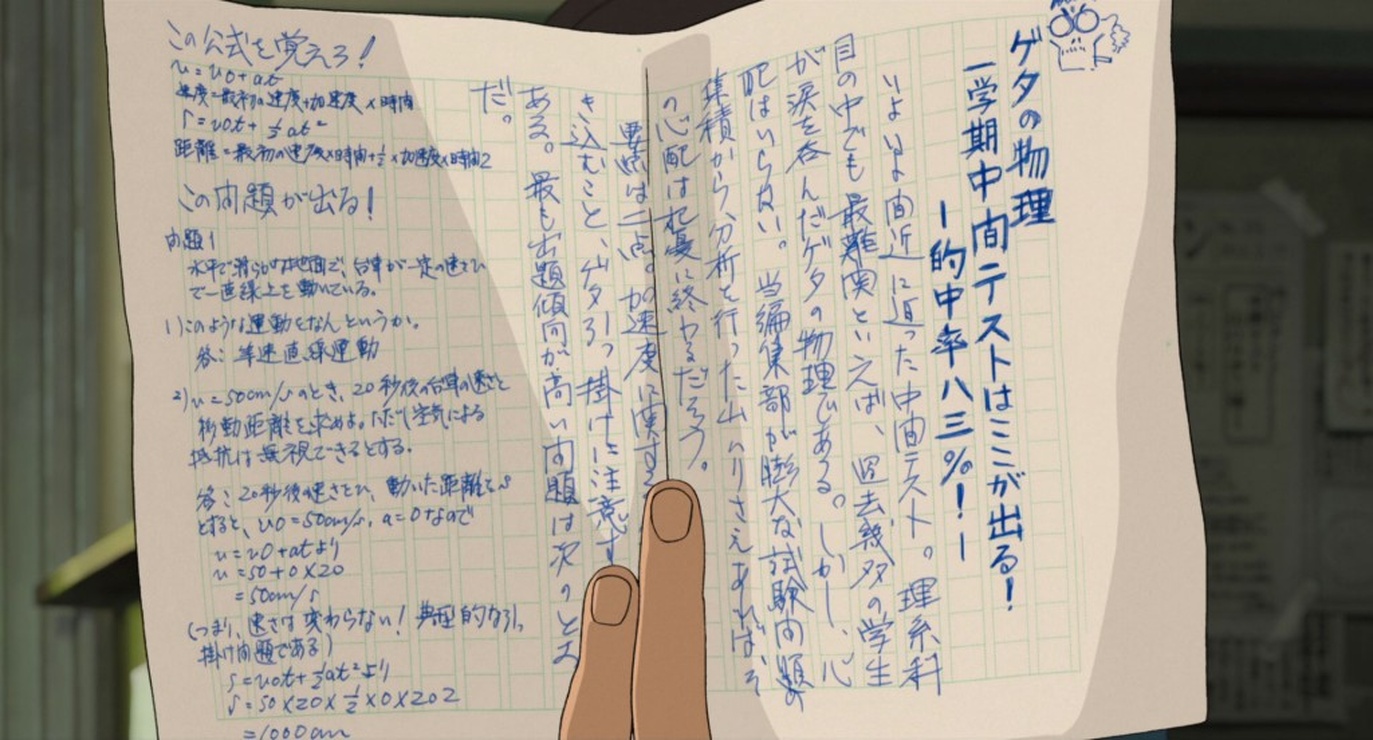 ゲタの物理
一学期中間テストはここが出る!
ー的中率八三%!ー
いよいよ間近に迫った中間テスト。理系科
目の中でも最難関といえば、過去幾多の学生
が涙を呑んだゲタの物理である。しかし、心
配はいらない。当編集部が膨大な試験問題の
集積から、分析を行った山ハリさえあれば、そ
の心配は杞憂に終わるだろう。
要点は二点。加速度に関する
き込むこと、ゲタ引っ掛けに注意す
ある。最も出題傾向が高い問題は次のとお
だ。
この公式を覚えろ!
v=v0+at
速度=最初の速度+加速度×時間
s=v0t+½at²
距離=最初の速度×時間+½×加速度×時間2
この問題が出る!
問題1
水平で滑らかな地面で、台車が一定の速さv
で一直線上を動いている。
1)このような運動をなんというか。
答:等速直線運動
2)v=50cm/sのとき、20秒後の台車の速さと
移動距離を求めよ。ただし空気による
抵抗は無視できるとする。
答:20秒後の速さをv、動いた距離をs
とすると、v0=50cm/s, a=0なので
v=v0+atより
v=50+0×20
=50cm/s
(つまり、速さは変わらない!典型的な引っ
掛け問題である)
s=v0t+½at²より
s=50×20×½×0×202
=1000cm